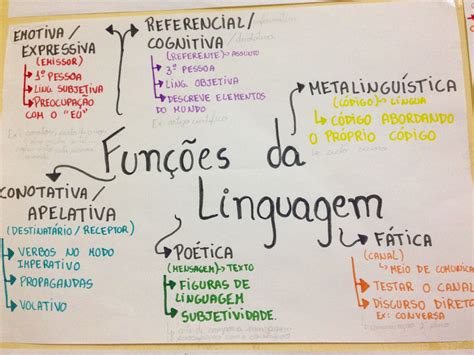 EMOTIVA /
EXPRESSIVA
(EMISSOR)
1ª PESSOA
LING SUBJETIVA
PREOCUPAÇÃO
COM O "EU"
REFERENCIAL/
COGNITIVA
(REFERENTE) → ASSUNTO
3ª PESSOA
LING. OBJETIVA
DESCREVE ELEMENTOS
DO MUNDO
METALINGUÍSTICA
(CÓDIGO) → LÍNGUA
CÓDIGO ABORDANDO
O PRÓPRIO CÓDIGO
Funções da
Linguagem
CONOTATIVA /
APELATIVA
(DESTINATÁRIO / RECEPTOR)
VERBOS NO MODO
IMPERATIVO
PROPAGANDAS
VOLATIVO
POÉTICA
(MENSAGEM) → TEXTO
FIGURAS DE
LINGUAGEM
SUBJETIVIDADE.
FÁTICA
(CANAL)
MEIO DE COMUNICA
TESTAR O CANAL
DISCURSO DIRETO
EX: CONVERSA